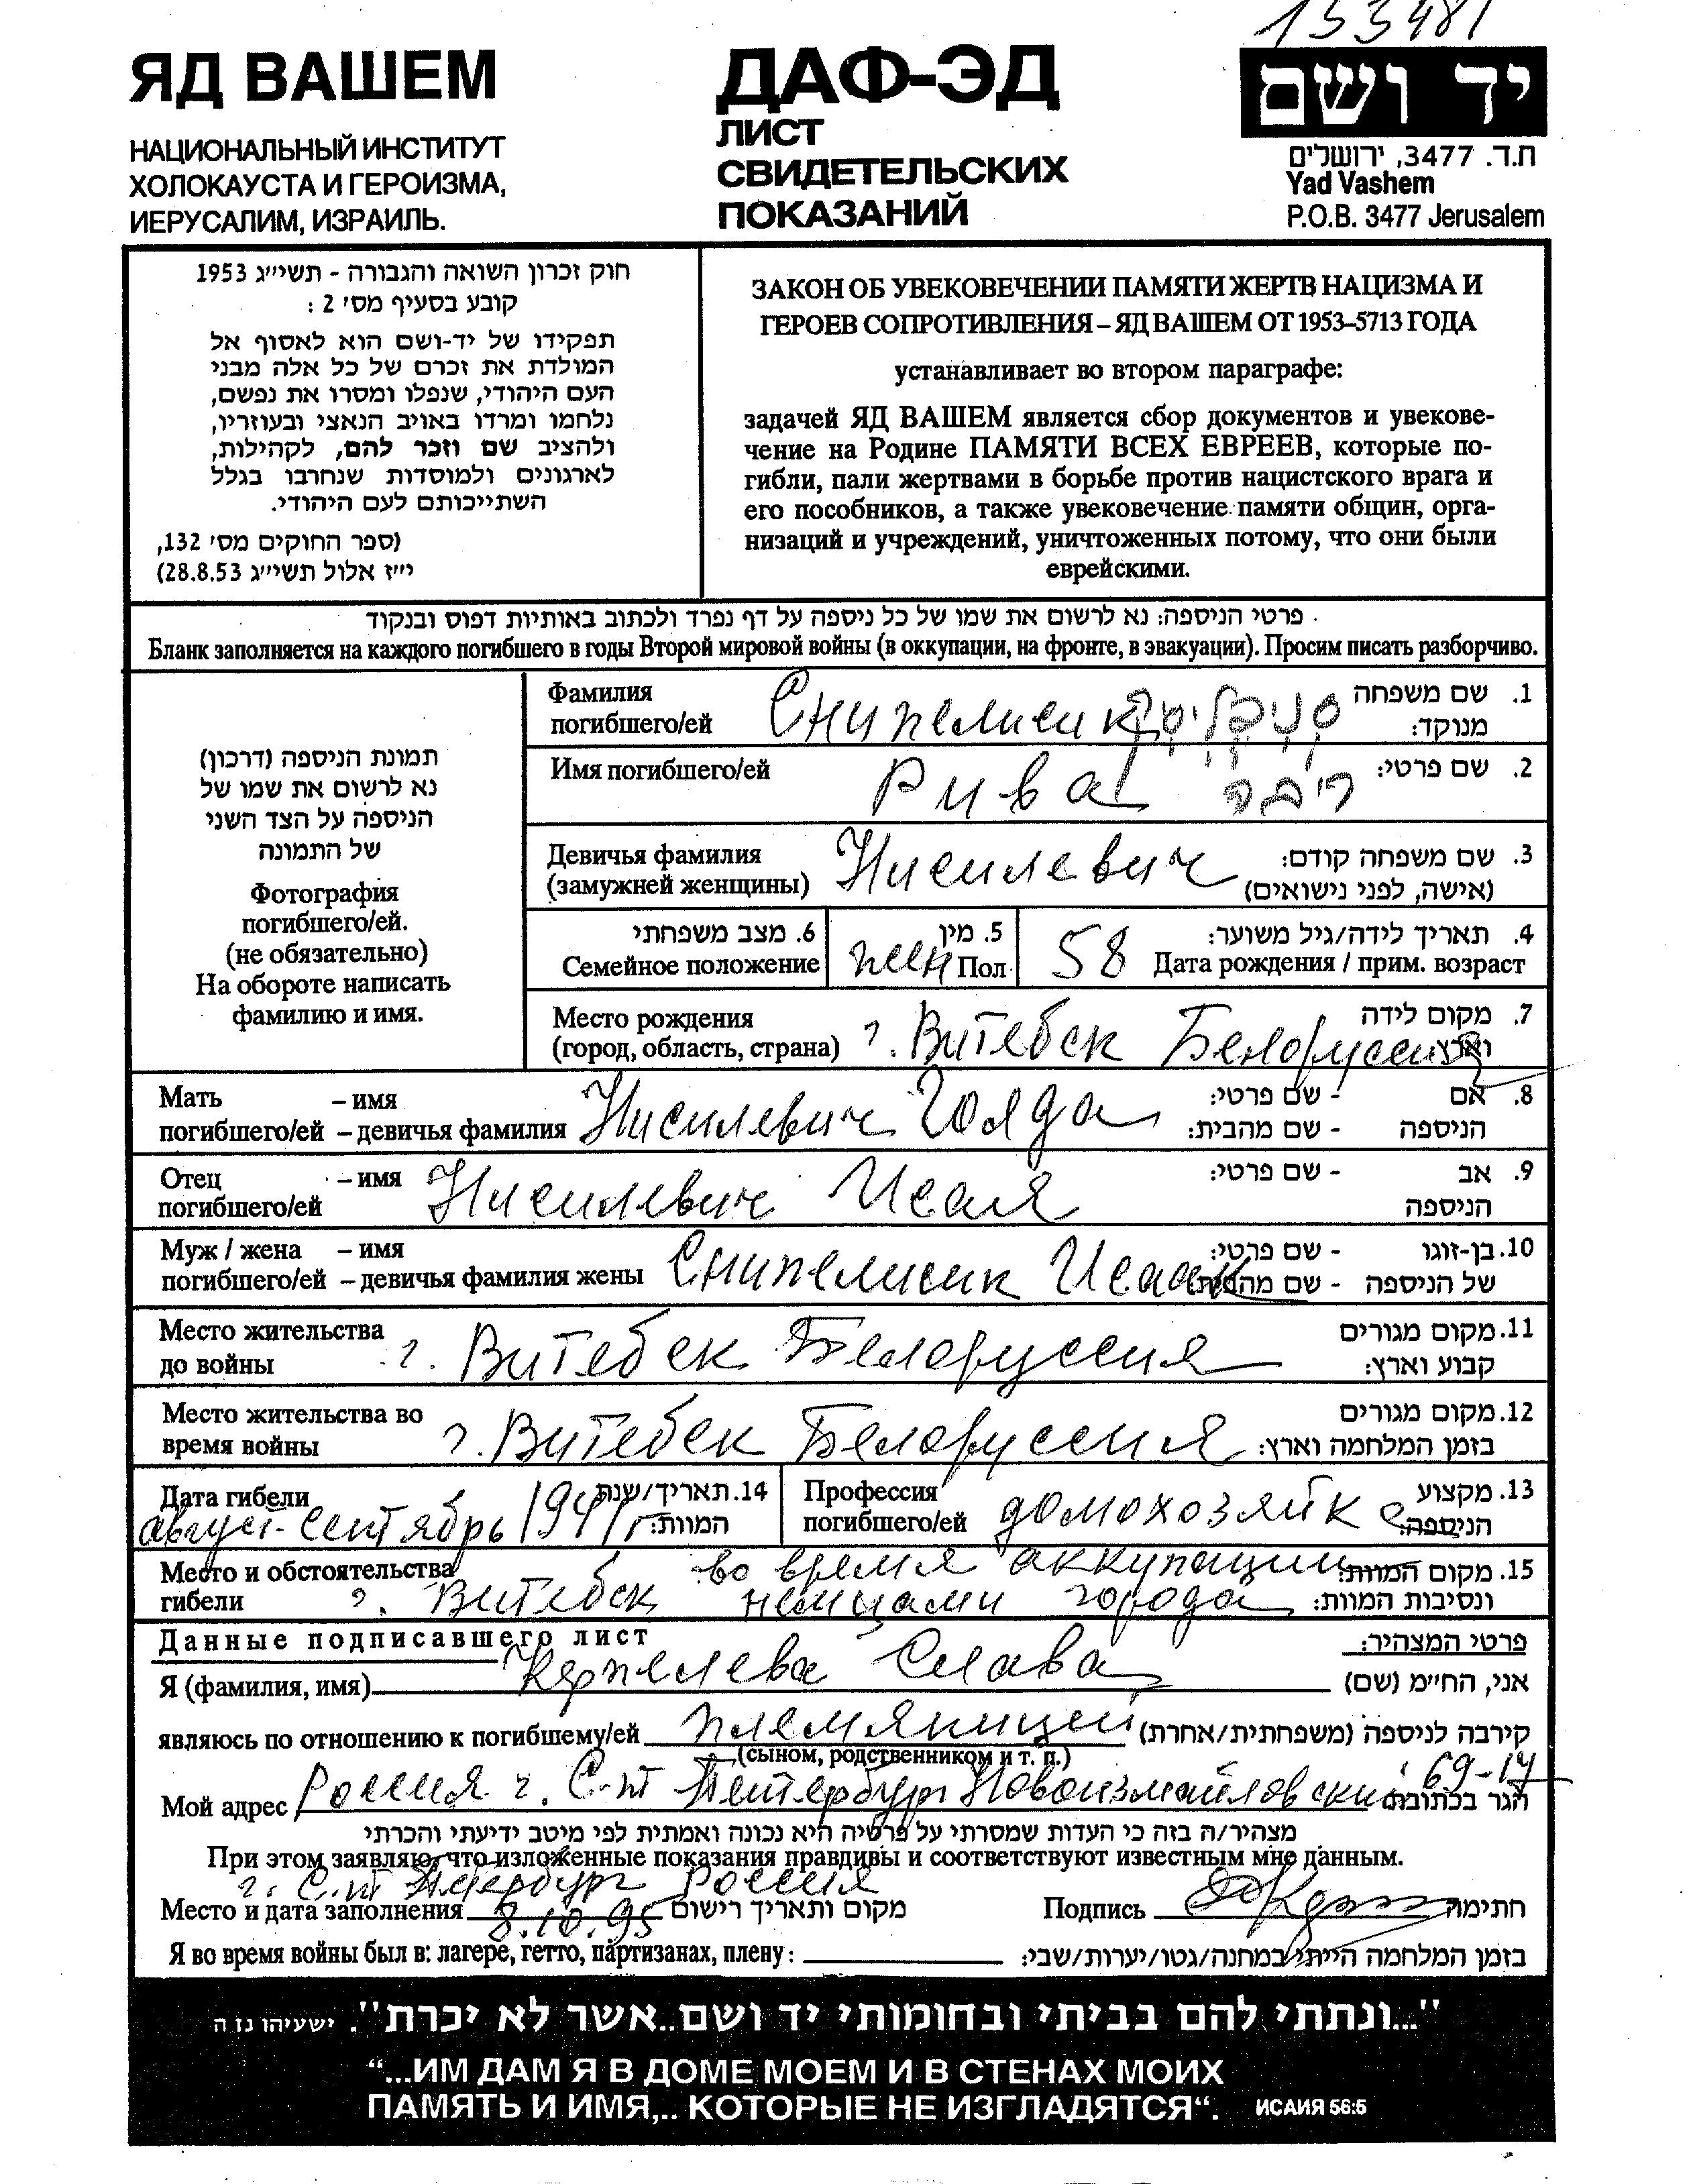 153481
ЯД ВАШЕМ
НАЦИОНАЛЬНЫЙ ИНСТИТУТ
ХОЛОКАУСТА И ГЕРОИЗМА,
ИЕРУСАЛИМ, ИЗРАИЛЬ.
ДАФ-ЭД
ЛИСТ
СВИДЕТЕЛЬСКИХ
ПОКАЗАНИЙ
יד ושם
ת.ד. 3477, ירושלים
Yad Vashem
P.O.B. 3477 Jerusalem
חוק זכרון השואה והגבורה - תשי״ג 1953
קובע בסעיף מס׳ 2 :
תפקידו של יד-ושם הוא לאסוף אל
המולדת את זכרם של כל אלה מבני
העם היהודי, שנפלו ומסרו את נפשם,
נלחמו ומרדו באויב הנאצי ובעוזריו,
ולהציב שם וזכר להם, לקהילות,
לארגונים ולמוסדות שנחרבו בגלל
השתייכותם לעם היהודי.
(ספר החוקים מס׳ 132,
י״ז אלול תשי״ג 28.8.53)
ЗАКОН ОБ УВЕКОВЕЧЕНИИ ПАМЯТИ ЖЕРТВ НАЦИЗМА И
ГЕРОЕВ СОПРОТИВЛЕНИЯ – ЯД ВАШЕМ ОТ 1953–5713 ГОДА
устанавливает во втором параграфе:
задачей ЯД ВАШЕМ является сбор документов и увекове-
чение на Родине ПАМЯТИ ВСЕХ ЕВРЕЕВ, которые по-
гибли, пали жертвами в борьбе против нацистского врага и
его пособников, а также увековечение памяти общин, орга-
низаций и учреждений, уничтоженных потому, что они были
еврейскими.
פרטי הניספה: נא לרשום את שמו של כל ניספה על דף נפרד ולכתוב באותיות דפוס ובנקוד
Бланк заполняется на каждого погибшего в годы Второй мировой войны (в оккупации, на фронте, в эвакуации). Просим писать разборчиво.
תמונת הניספה (דרכון)
נא לרשום את שמו של
הניספה על הצד השני
של התמונה
Фотография
погибшего/ей.
(не обязательно)
На обороте написать
фамилию и имя.
Фамилия Снипелисик 1. שם משפחה
погибшего/ей מנוקד:
Имя погибшего/ей Рива ריבה 2. שם פרטי:
Девичья фамилия Нисилевич 3. שם משפחה קודם:
(замужней женщины) (אישה, לפני נישואים)
6. מצב משפחתי 5. מין 4. תאריך לידה/גיל משוער:
Семейное положение жен Пол 58 Дата рождения / прим. возраст
Место рождения 7. מקום לידה
(город, область, страна) г. Витебск Белоруссия וארץ:
Мать – имя 8. אם - שם פרטי:
погибшего/ей – девичья фамилия Нисилевич Голда הניספה - שם מהבית:
Отец – имя Нисилевич Исая 9. אב - שם פרטי:
погибшего/ей הניספה
Муж / жена – имя 10. בן-זוגו - שם פרטי:
погибшего/ей – девичья фамилия жены Снипелисик Исаак של הניספה - שם מהבית:
Место жительства 11. מקום מגורים
до войны г. Витебск Белоруссия קבוע וארץ:
Место жительства во 12. מקום מגורים
время войны г. Витебск Белоруссия בזמן המלחמה וארץ:
Дата гибели 14. תאריך/שנת
август-сентябрь 1941 г המוות:
Профессия 13. מקצוע
погибшего/ей домохозяйка הניספה:
Место и обстоятельства во время аккупации 15. מקום המוות:
гибели г. Витебск немцами города ונסיבות המוות:
Данные подписавшего лист פרטי המצהיר:
Я (фамилия, имя) Керпелева Слава אני, הח״מ (שם)
являюсь по отношению к погибшему/ей племяницей קירבה לניספה (משפחתית/אחרת)
(сыном, родственником и т. п.)
Мой адрес Россия г. С-кт Петербург Новоизмайловский 69-17 הגר בכתובת
מצהיר/ה בזה כי העדות שמסרתי על פרטיה היא נכונה ואמתית לפי מיטב ידיעתי והכרתי
При этом заявляю, что изложенные показания правдивы и соответствуют известным мне данным.
г. С.кт Петербург Россия
Место и дата заполнения 8.10.95 מקום ותאריך רישום Подпись חתימה
Я во время войны был в: лагере, гетто, партизанах, плену: בזמן המלחמה הייתי במחנה/גטו/יערות/שבי:
"...ונתתי להם בביתי ובחומותי יד ושם..אשר לא יכרת". ישעיהו נו ה
“...ИМ ДАМ Я В ДОМЕ МОЕМ И В СТЕНАХ МОИХ
ПАМЯТЬ И ИМЯ,.. КОТОРЫЕ НЕ ИЗГЛАДЯТСЯ“. ИСАИЯ 56:5